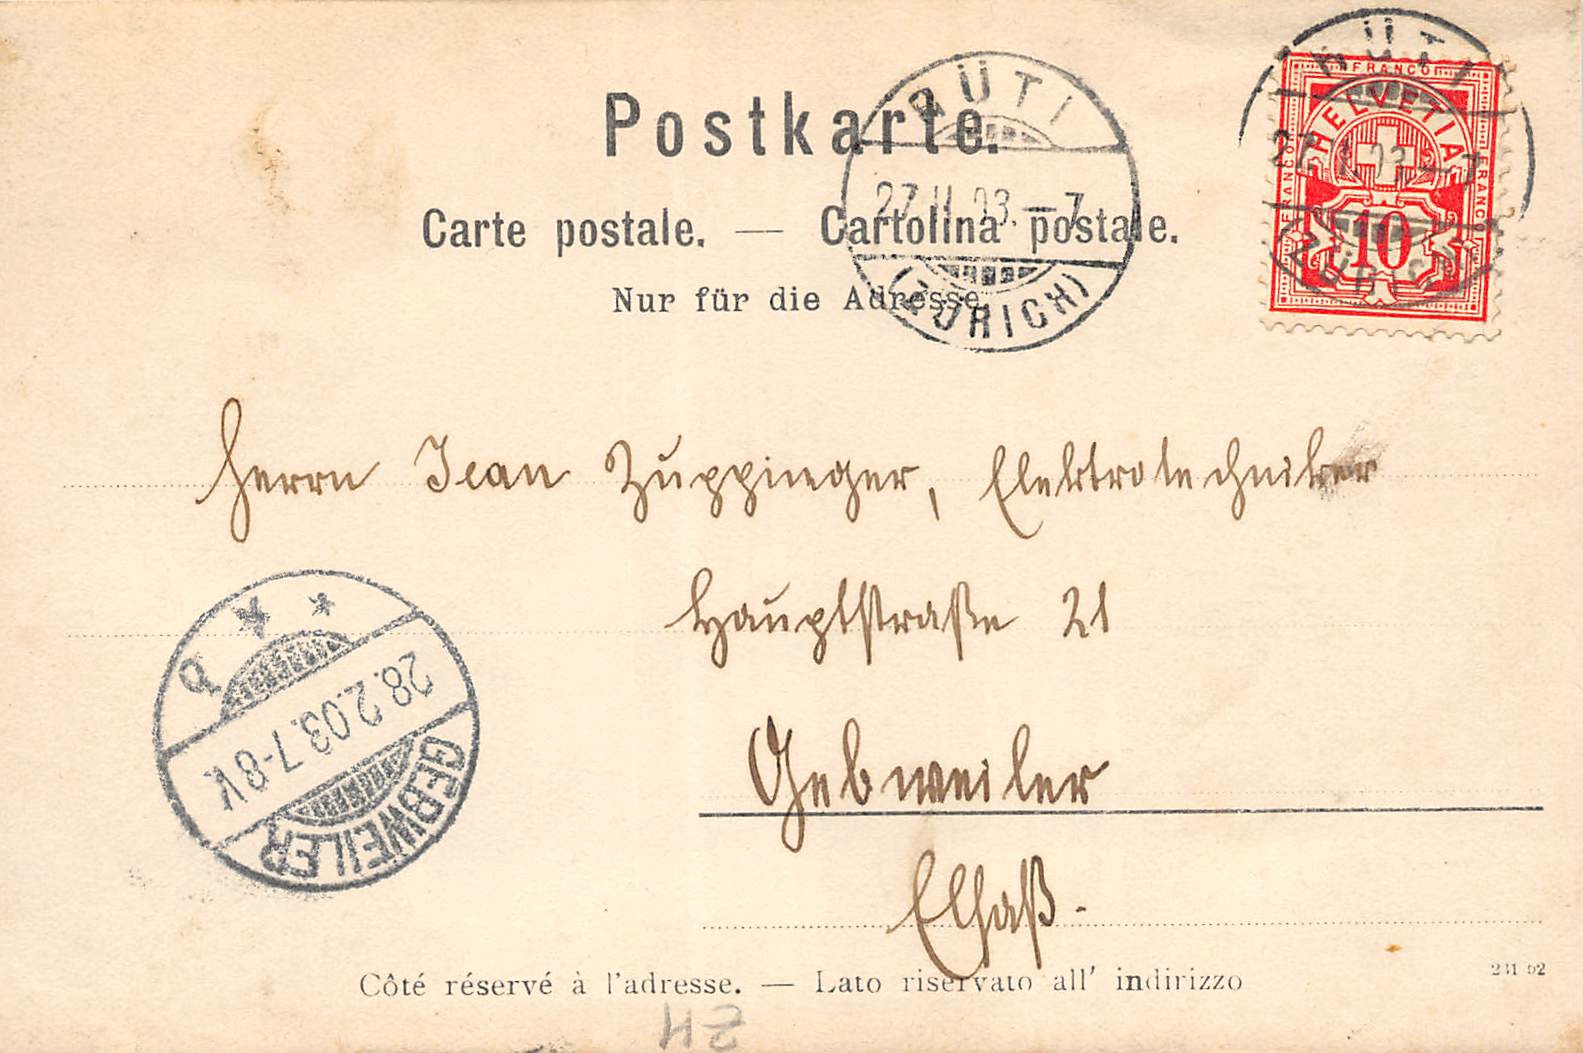 Postkarte.
Carte postale. — Cartolina postale.
Nur für die Adresse.
RÜTI
27.II.03.–7
(ZÜRICH)
RÜTI
27. 03.–7
(ZÜRICH)
FRANCO
FRANCO
FRANCO
HELVETIA
10
Herrn Jean Zuppinger, Elektrotechniker
Hauptstraße 21
Gebweiler
Elsaß.
* * b
28.2.03.7-8V.
GEBWEILER
Côté réservé à l'adresse. — Lato riservato all' indirizzo
241 02
ZH